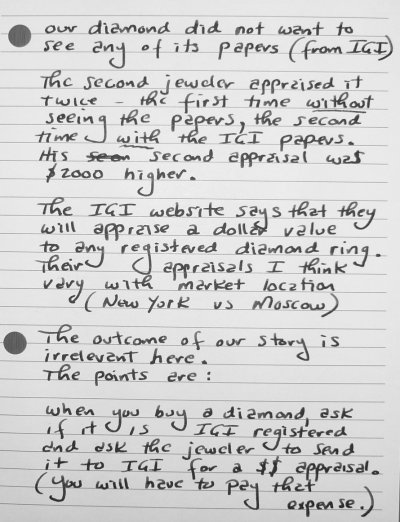 our diamond did not want to
see any of its papers (from IGI)
The second jeweler appraised it
twice - the first time without
seeing the papers, the second
time with the IGI papers.
His seon second appraisal was
$2000 higher.
The IGI website says that they
will appraise a dollar value
to any registered diamond ring.
Their appraisals I think
vary with market location
(New York vs Moscow)
The outcome of our story is
irrelevant here.
The points are:
when you buy a diamond, ask
if it is IGI registered
and ask the jeweler to send
it to IGI for a $$ appraisal.
(You will have to pay that
expense.)